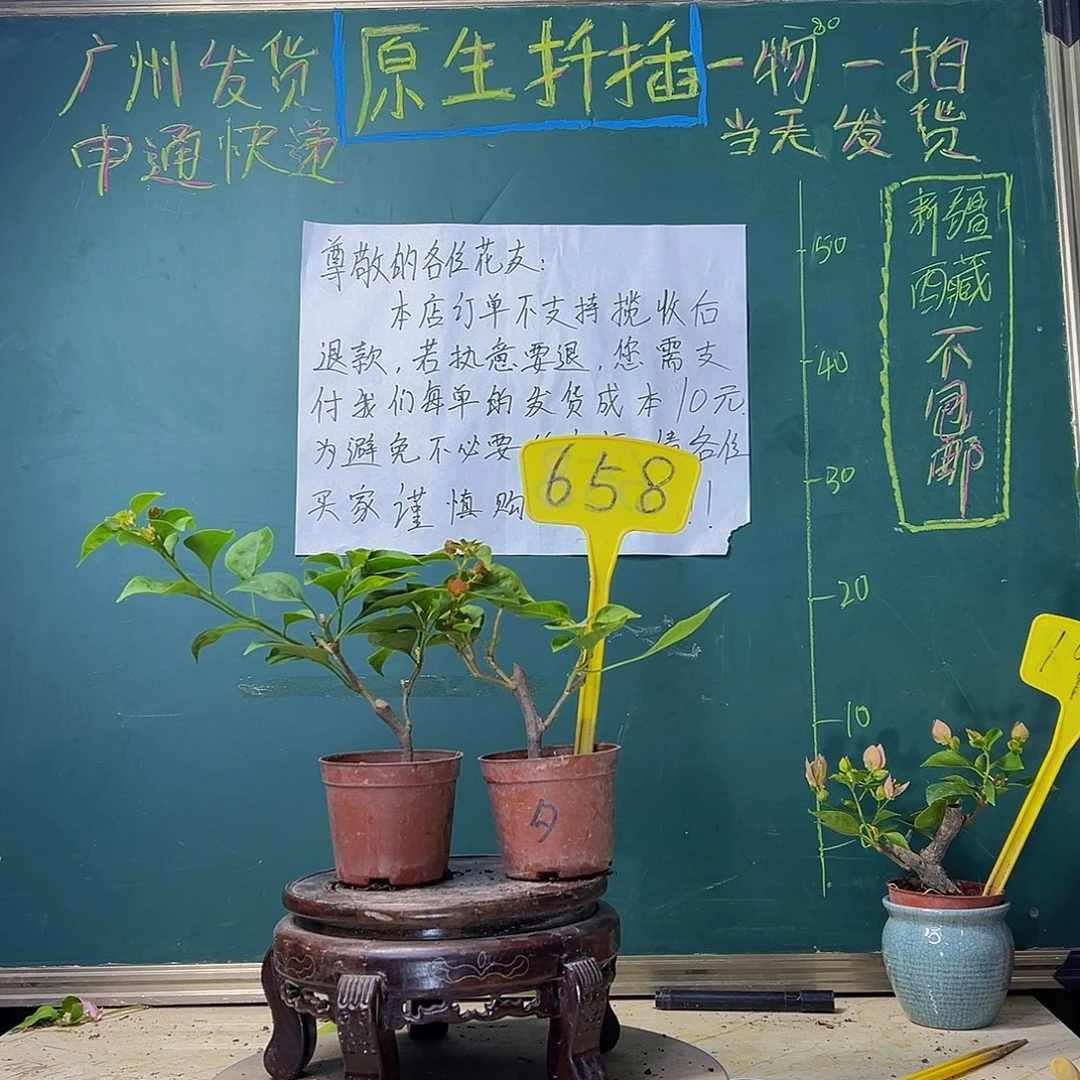 广州发货
原生扦插
一物一拍
80
申通快递
当天发货
尊敬的各位花友:
本店订单不支持揽收后
退款,若执意要退,您需支
付我们每单的发货成本10元
为避免不必要 各位
买家谨慎购 !!
658
50
40
30
20
10
新疆
西藏
不
包
邮
夕
1